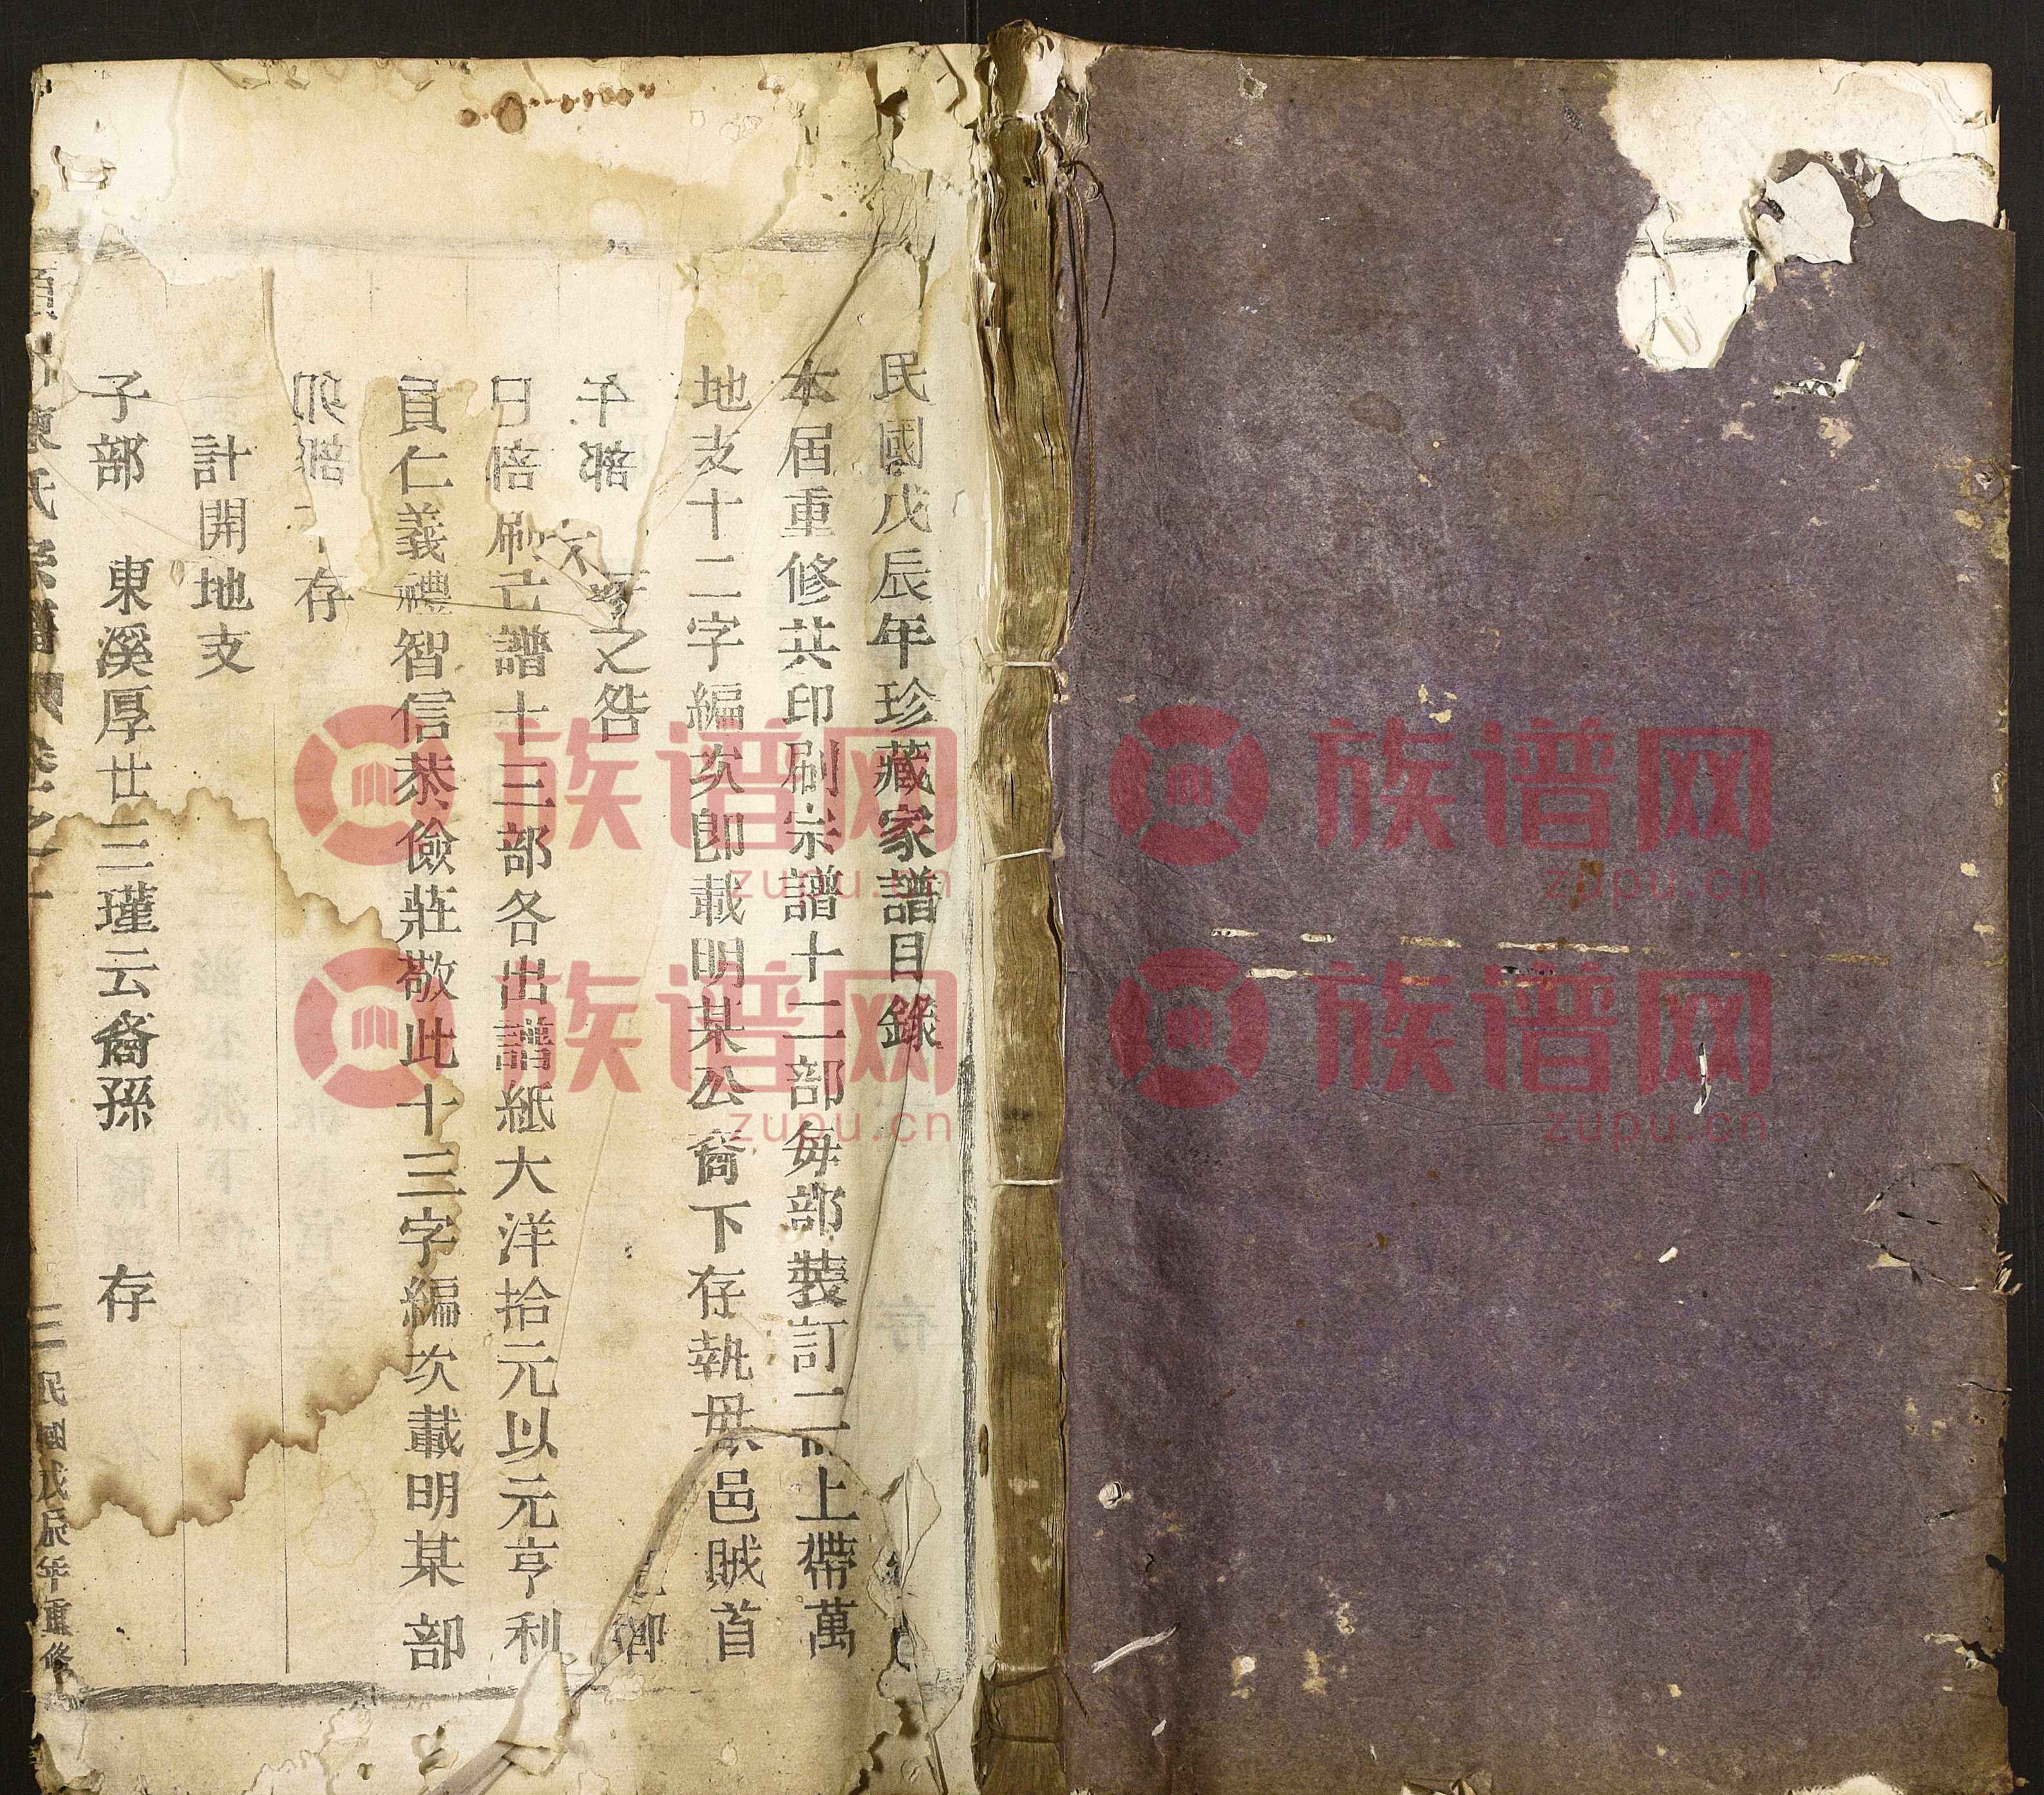 民國戊辰年珍藏家譜目錄
本屆重修共印刷宗譜十二部每部裝訂二 上帶萬
地支十二字編次卽載明某公裔下存執毋 邑賊首
午部 之咎
日 刷 譜十三部各出譜紙大洋拾元以元亨利
貞仁義禮智信恭儉莊敬此十三字編次載明某部
卯部 存
計開地支
子部 東溪厚廿三瑾云裔孫 存
陳氏宗譜 卷之
三 民國戊辰年重修
族谱网
zupu.cn
族谱网
zupu.cn
族谱网
zupu.cn
族谱网
zupu.cn